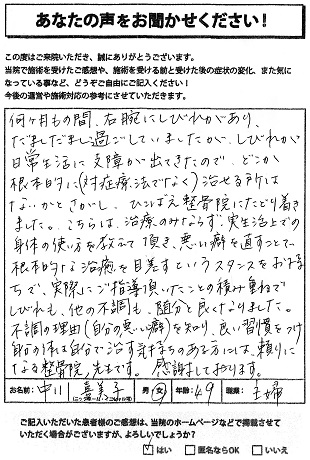 あなたの声をお聞かせください！
この度はご来院いただき、誠にありがとうございます。
当院で施術を受けたご感想や、施術を受ける前と受けた後の症状の変化、また気に
なっている事など、どうぞご自由にご記入ください！
今後の運営や施術対応の参考にさせていただきます。
何ヶ月もの間、右腕にしびれがあり、
だましだまし過ごしていましたが、しびれが
日常生活に支障が出てきたので、どこか
根本的に(対症療法でなく)治せる所は
ないかとさがし、ひばえ整骨院にたどり着き
ました。こちらは、治療のみならず、実生活上での
身体の使い方を教えて頂き、悪い癖を直すことで
根本的な治癒を目差すというスタンスをお持
ちで、実際にご指導頂いたことの積み重ねで
しびれも、他の不調も、随分と良くなりました。
不調の理由(自分の悪い癖)を知り、良い習慣をつけ
自分の体は自分で治す気持ちのある方には、頼りに
なる整骨院、先生です。感謝しております。
お名前： 中川 喜美子 男・女 年齢：49 職業：主婦
ご記入いただいた患者様のご感想は、当院のホームページなどで掲載させて
いただく場合がございますが、よろしいでしょうか？
はい 匿名ならOK いいえ